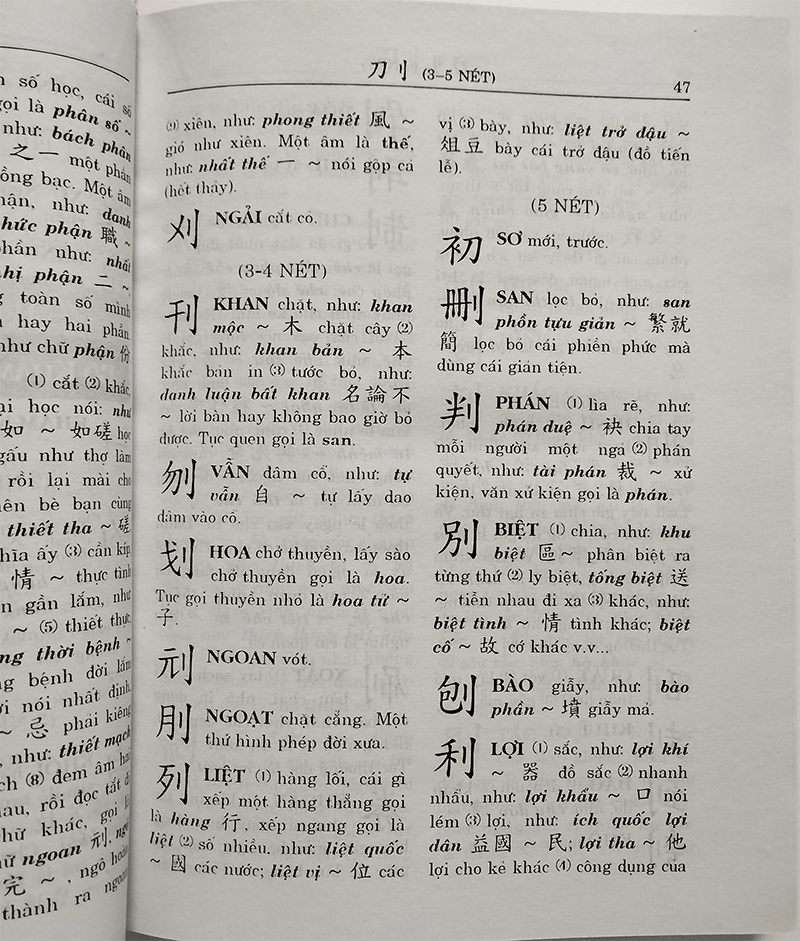 n số học, cái số
gọi là phân số ~
như: bách phân
之一 một phần
đồng bạc. Một âm
phận, như: danh
chức phận 職 ~
phần như: nhất
nhị phận 二 ~
g toàn số mình
n hay hai phần
như chữ phận 份
(1) cắt (2) khắc,
ại học nói: như
如 ~ 如磋 học
gấu như thợ làm
rồi lại mài cho
nên bè bạn cùng
thiết tha ~ 磋
nghĩa ấy (3) cần kíp
情 ~ thực tình
n gần lắm, như
~ (5) thiết thực,
ng thời bệnh ~
g bệnh đời lắm
i nói nhất định,
~ 忌 phải kiêng
, như: thiết mạch
ch (8) đem âm hai
au, rồi đọc tắt đi
chữ khác, gọi là
ữ ngoan 刓, ngô
完 ~, ngô hoàn
thành ra ngoan
刀刂 (3-5 NÉT)
47
(9) xiên, như: phong thiết 風 ~
gió như xiên. Một âm là thế,
như: nhất thế 一 ~ nói gộp cả
(hết thảy).
刈 NGẢI cắt cỏ.
(3-4 NÉT)
刊 KHAN chặt, như: khan
mộc ~ 木 chặt cây (2)
khắc, như: khan bản ~ 本
khắc bản in (3) tước bỏ, như:
danh luận bất khan 名論不
~ lời bàn hay không bao giờ bỏ
được. Tục quen gọi là san.
刎 VẪN đâm cổ, như: tự
vẫn 自 ~ tự lấy dao
đâm vào cổ.
划 HOA chở thuyền, lấy sào
chở thuyền gọi là hoa.
Tục gọi thuyền nhỏ là hoa tử ~
子.
刓 NGOAN vót.
刖 NGOẠT chặt cẳng. Một
thứ hình phép đời xưa.
列 LIỆT (1) hàng lối, cái gì
xếp một hàng thẳng gọi
là hàng 行, xếp ngang gọi là
liệt (2) số nhiều, như: liệt quốc
~ 國 các nước; liệt vị ~ 位 các
vị (3) bày, như: liệt trở đậu ~
俎豆 bày cái trở đậu (đồ tiến
lễ).
(5 NÉT)
初 SƠ mới, trước.
刪 SAN lọc bỏ, như: san
phồn tựu giản ~ 繁就
簡 lọc bỏ cái phiền phức mà
dùng cái giản tiện.
判 PHÁN (1) lìa rẽ, như:
phán duệ ~ 袂 chia tay
mỗi người một ngả (2) phán
quyết, như: tài phán 裁 ~ xử
kiện, văn xử kiện gọi là phán.
別 BIỆT (1) chia, như: khu
biệt 區 ~ phân biệt ra
từng thứ (2) ly biệt, tống biệt 送
~ tiễn nhau đi xa (3) khác, như:
biệt tình ~ 情 tình khác; biệt
cố ~ 故 cớ khác v.v...
刨 BÀO giẫy, như: bào
phần ~ 墳 giẫy mả.
利 LỢI (1) sắc, như: lợi khí
~ 器 đồ sắc (2) nhanh
nhẩu, như: lợi khẩu ~ 口 nói
lém (3) lợi, như: ích quốc lợi
dân 益國 ~ 民; lợi tha ~ 他
lợi cho kẻ khác (4) công dụng của